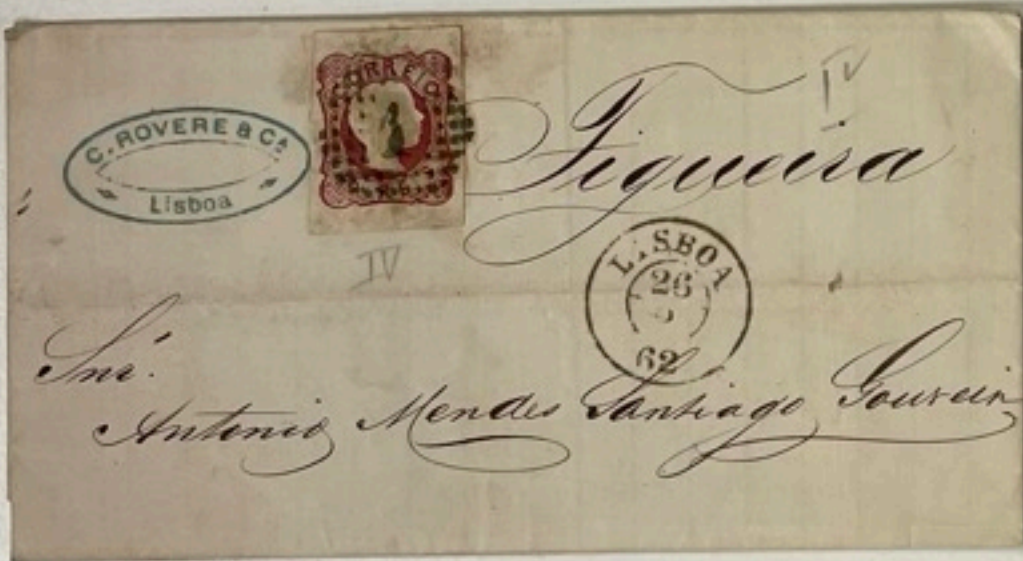 C. ROVERE & Cª
Lisboa
CORREIO
1
Figueira
IV
IV
LISBOA
26
62
Snr.
Antonio Mendes Santiago Gouveia